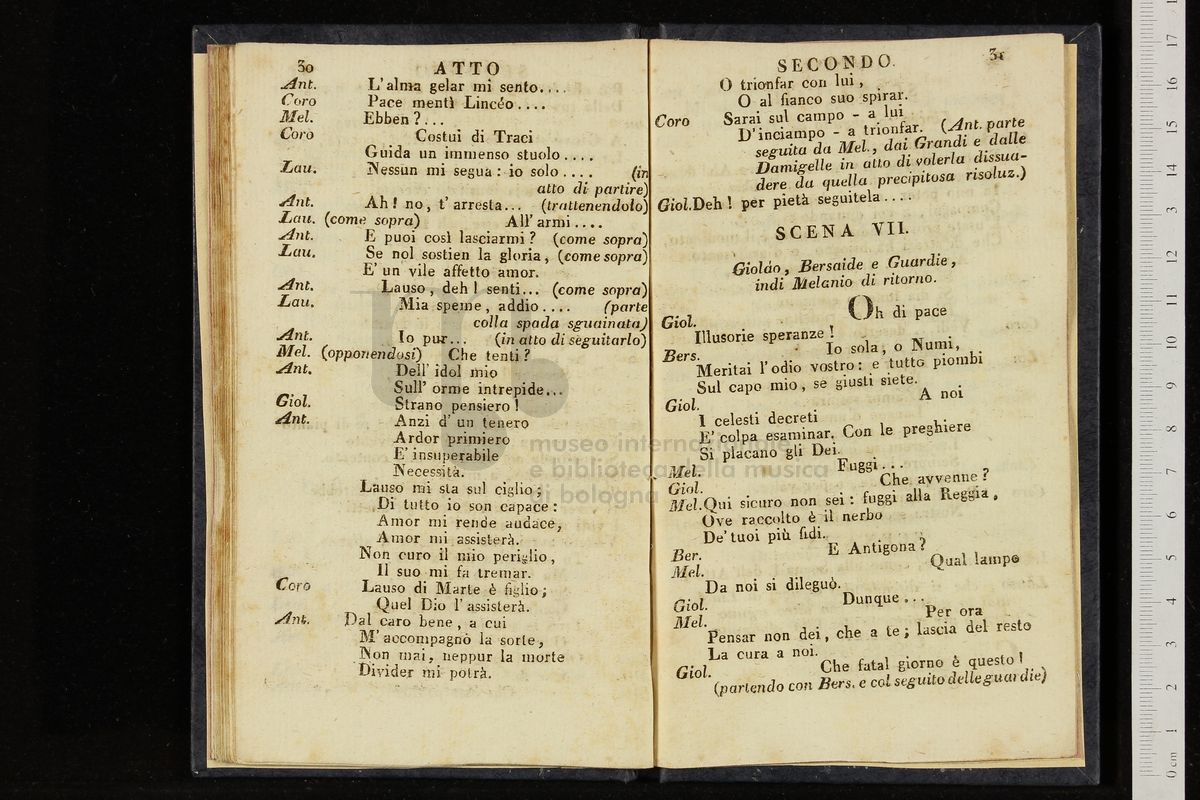 30
ATTO
Ant. L'alma gelar mi sento....
Coro Pace mentì Lincéo....
Mel. Ebben?...
Coro Costui di Traci
Guida un immenso stuolo....
Lau. Nessun mi segua: io solo.... (in
atto di partire)
Ant. Ah! no, t'arresta... (trattenendolo)
Lau. (come sopra) All'armi....
Ant. E puoi così lasciarmi? (come sopra)
Lau. Se nol sostien la gloria, (come sopra)
E' un vile affetto amor.
Ant. Lauso, deh! senti... (come sopra)
Lau. Mia speme, addio.... (parte
colla spada sguainata)
Ant. Io pur... (in atto di seguitarlo)
Mel. (opponendosi) Che tenti?
Ant. Dell' idol mio
Sull' orme intrepide...
Giol. Strano pensiero!
Ant. Anzi d' un tenero
Ardor primiero
E' insuperabile
Necessità.
Lauso mi sta sul ciglio;
Di tutto io son capace:
Amor mi rende audace,
Amor mi assisterà.
Non curo il mio periglio,
Il suo mi fa tremar.
Coro Lauso di Marte è figlio;
Quel Dio l' assisterà.
Ant. Dal caro bene, a cui
M' accompagnò la sorte,
Non mai, neppur la morte
Divider mi potrà.
SECONDO.
31
O trionfar con lui,
O al fianco suo spirar.
Coro Sarai sul campo - a lui
D'inciampo - a trionfar. (Ant. parte
seguita da Mel., dai Grandi e dalle
Damigelle in atto di volerla dissua-
dere da quella precipitosa risoluz.)
Giol. Deh! per pietà seguitela....
SCENA VII.
Gioldo, Bersaide e Guardie,
indi Melanio di ritorno.
Giol. Oh di pace
Illusorie speranze!
Bers. Io sola, o Numi,
Meritai l'odio vostro: e tutto piombi
Sul capo mio, se giusti siete.
Giol. A noi
I celesti decreti
E' colpa esaminar. Con le preghiere
Si placano gli Dei.
Mel. Fuggi...
Giol. Che avvenne?
Mel. Qui sicuro non sei: fuggi alla Reggia,
Ove raccolto è il nerbo
De' tuoi più fidi.
Ber. E Antigona?
Mel. Qual lampo
Da noi si dileguò.
Giol. Dunque...
Mel. Per ora
Pensar non dei, che a te; lascia del resto
La cura a noi.
Giol. Che fatal giorno è questo!
(partendo con Bers. e col seguito delle guardie)
museo internazionale
e biblioteca della musica
di bologna
0 cm 1 2 3 4 5 6 7 8 9 10 11 12 13 14 15 16 17